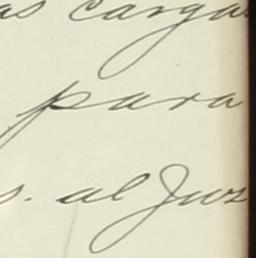 as carga
para
s. al Juz